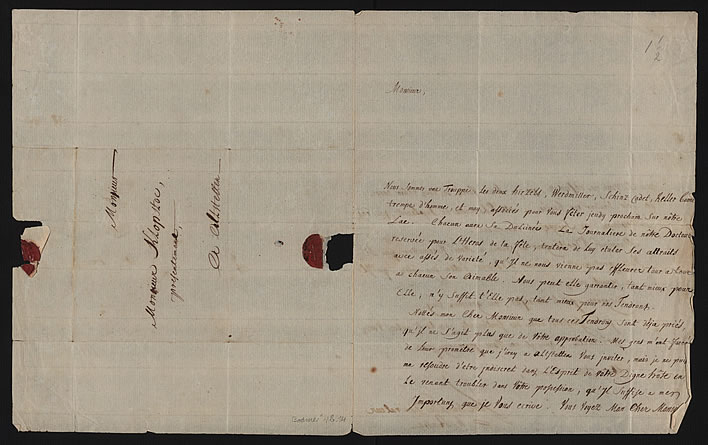 Monsieur
Monsieur Klopstoc,
présentement
a altstetten
1 1/2
Monsieur,
Nous sommes une Trouppe, les deux hirzels, Werdmiller, Schinz cadet, Keller
trempe d'homme, et moy associés pour vous fêter jeudy prochain sur nôtre
Lac. Chacun aura sa Dulcinée. La Tournaliere de nôtre Docteur
reservée pour l'Heros de la fête, tentera de luy étaler ses attraits
avec assés de varieté, qu'Il ne nous vienne pas effleurer tour a tour
a chacun son aimable. Nous peut elle garantir, tant mieux pour
Elle, n'y suffit t'elle pas, tant mieux pour ces Tendrons.
Notés mon Cher Monsieur que tous ces Tendrons sont déja priés,
qu'Il ne s'agit plus que de Vôtre approbation. Mes gens m'ont
de leur promêtre que j'irey a altstetten Vous inviter, mais je ne puis
me resoudre d'etre indiscret dans l'Esprit de Vôtre Digne hôte en
Le venant troubler dans Vôtre possession, qu'Il suffise a mes
Importuns, que je Vous ecrive. Vous Voyez Mon Cher
Bodmer